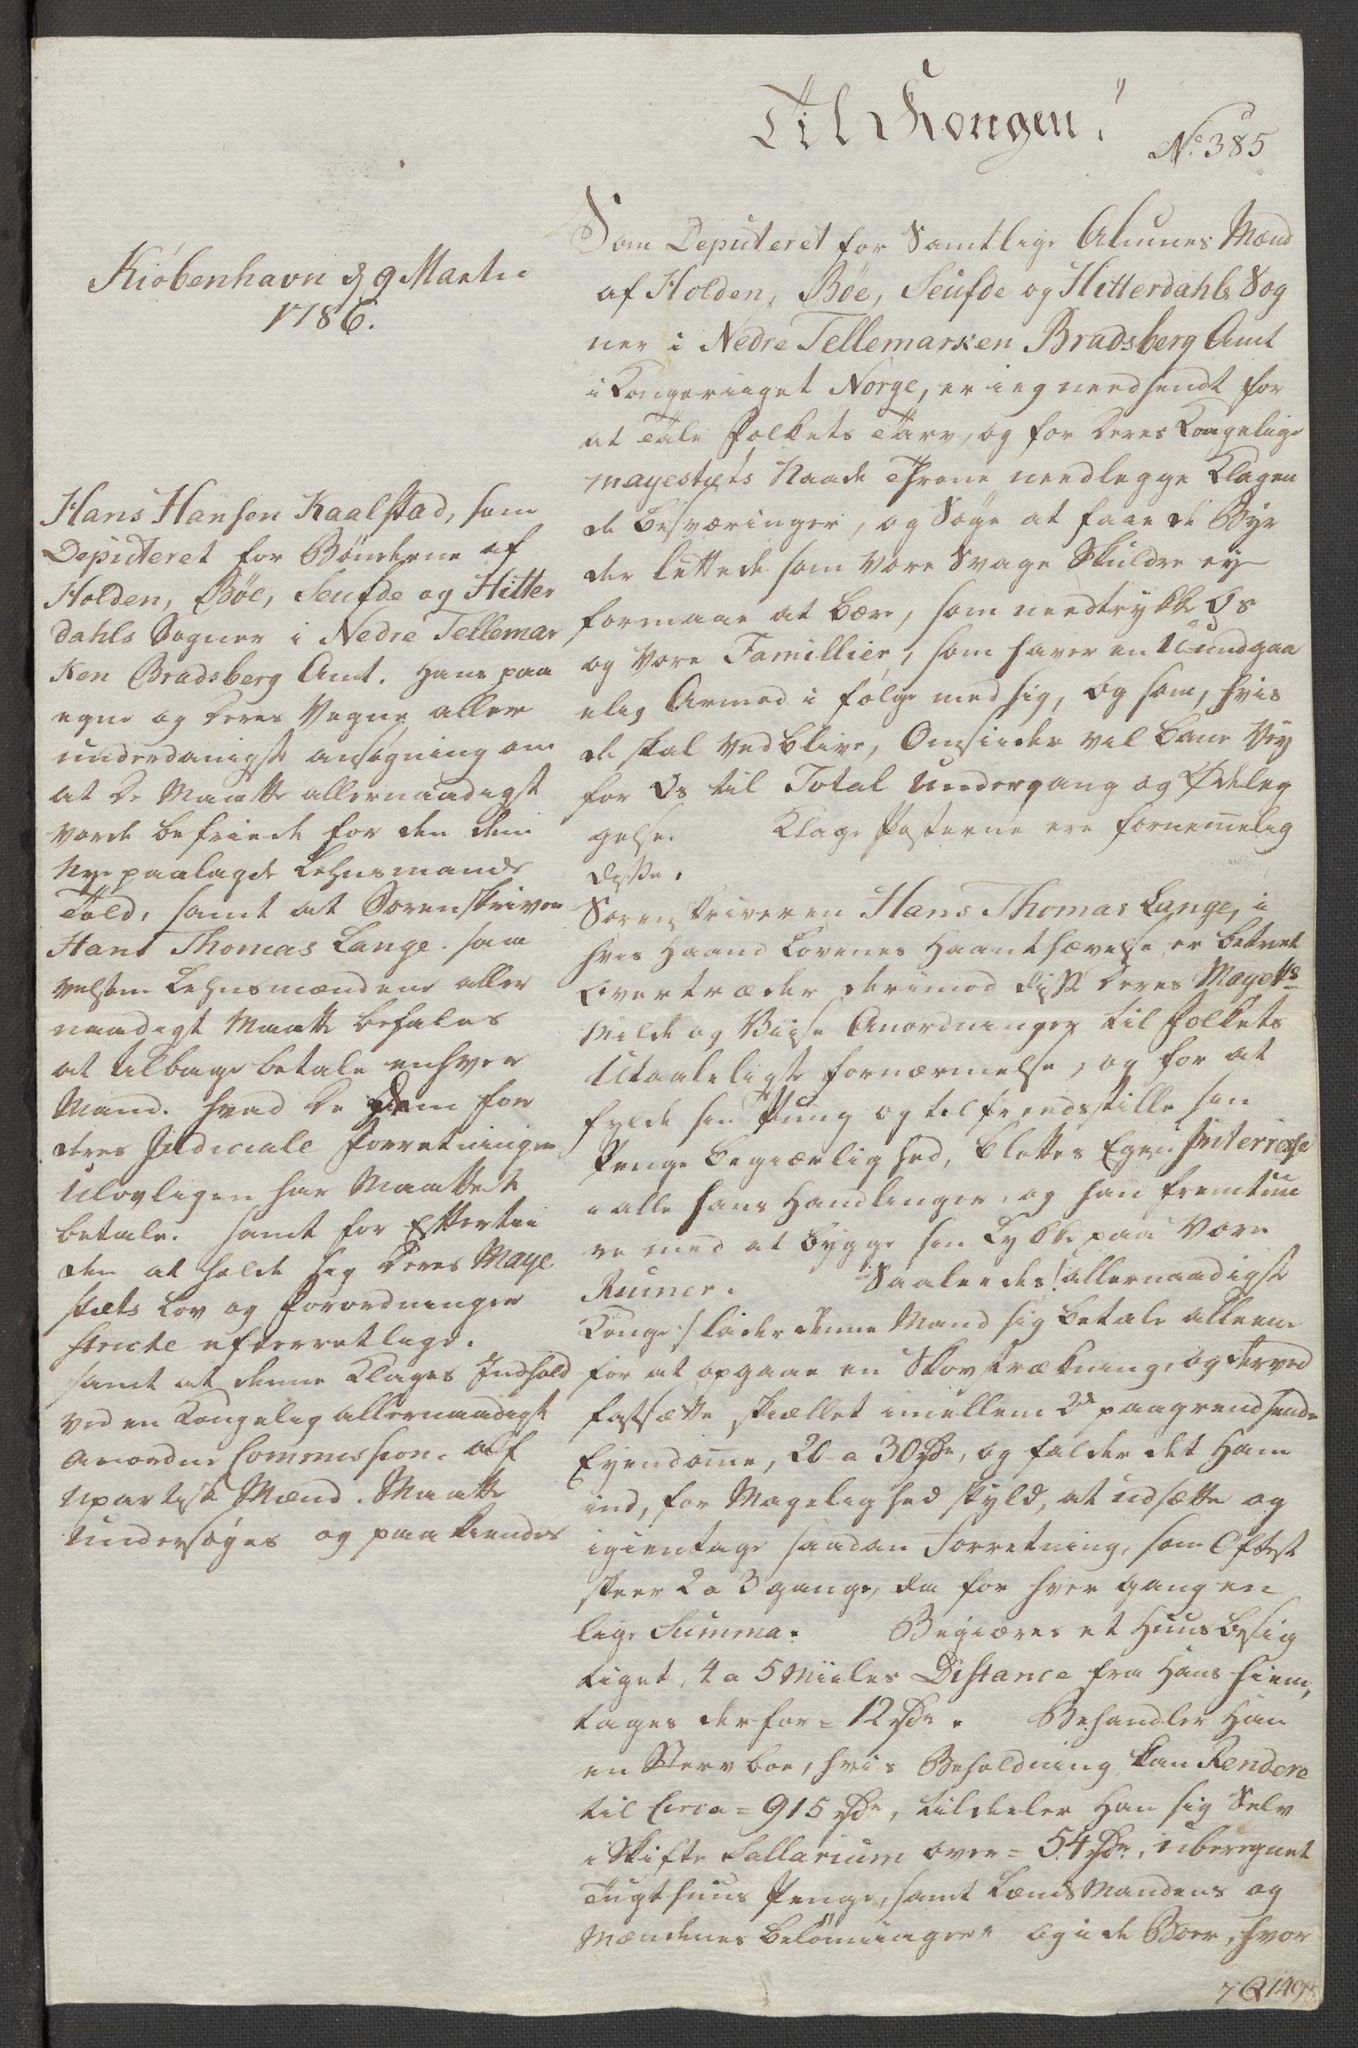 Til Kongen!
No 385
Kiöbenhavn d 9 Martii
1786.
Hans Hansen Kaalstad, som
Deputeret for Bönderne af
Holden, Böe, Seufde og Hitter
dahls Sogner i Nedre Tellemar
ken Bradsberg Amt. Hans paa
egne og deres Vegne aller
underdanigste ansögning om
at de Maatte allernaadigst
vorde befriede for den dem
Nye paalagde Lehnsmands
Told, samt at Sorenskriver
Hans Thomas Lange. saa
velsom Lehnsmændene aller
naadigst Maatte befales
at tilbage betale enhver
Mand. hvad de dem for
deres Judiciale Forretninger
Ulovligen har Maattet
betale. samt for Eftertii
den at holde sig Deres Maye
stæts Lov og Forordninger
stricte efterrettlige.
samt at denne Klages Indhold
ved en Kongelig allernaadigst
anordnet Commission. af
upartisk Mænd. Maatte
undersöges og paakiendes
Som Deputeret for Samtlige Almues Mænd
af Holden, Böe, Seufde og Hitterdahls Sog
ner i Nedre Tellemarken Bradsberg Amt
i Kongeriiget Norge, er ieg needsendt for
at tale Folkets Tarv, og for Deres Kongelige
Mayestæts Naade Throne needlegge Klagen
de besværinger, og Söge at faae de Byr
der lettede som Vore Svage Skuldre ey
formaae at bære, som needtrykke Os
og Vore Famillier, som haver en Uundgaa
elig Armod i fölge med sig, og som, hvis
de skal vedblive, Omsiider vil bane Vey
for Os til Total Undergang og Ödeleg
gelse. Klage Posterne ere fornemelig
disse.
Sorenskriveren Hans Thomas Lange, i
hvis Haand Lovenes Haanthævelse er betroet
Overtræder derimod disse Deres Mayets
Milde og Viise Anordninger til Folkets
Utaaleligste fornærmelse, og for at
fylde sin Pung og tilfreedsstille sin
Penge begiærlighed, blottes Egen Interresse
i alle hans Handlinger, og han fremtuu
re med at bygge sin Lykke paa Vore
Ruiner. Saaleedes! allernaadigste
Konge! lader denne Mand sig betale alleene
for at opgaae en Skovstrækning, og derved
fastsætte skiællet imellem 2de paagrendsende
Eyendomme, 20 a 30 rdr, og falder det Ham
ind, for Magelighed skyld, at udsætte og
igientage saadan Forretning, som Oftest
skeer 2 a 3 gange, da for hver gang en
lige Summa. Begiæres et Huus besig
tiget, 4 a 5 Miiles Distance fra Hans hiem,
tages derfor = 12 rdr. Behandler Han
en Sterv boe, hvis Beholdning kan Rendere
til Circa = 915 rdr, tildeeler Han sig Selv
i Skifte Sallarium over = 54 rdr, uberegnet
Tugthuus Penge, samt Lænds Mandens og
Mændenes belönninger. og i de Boer, hvor